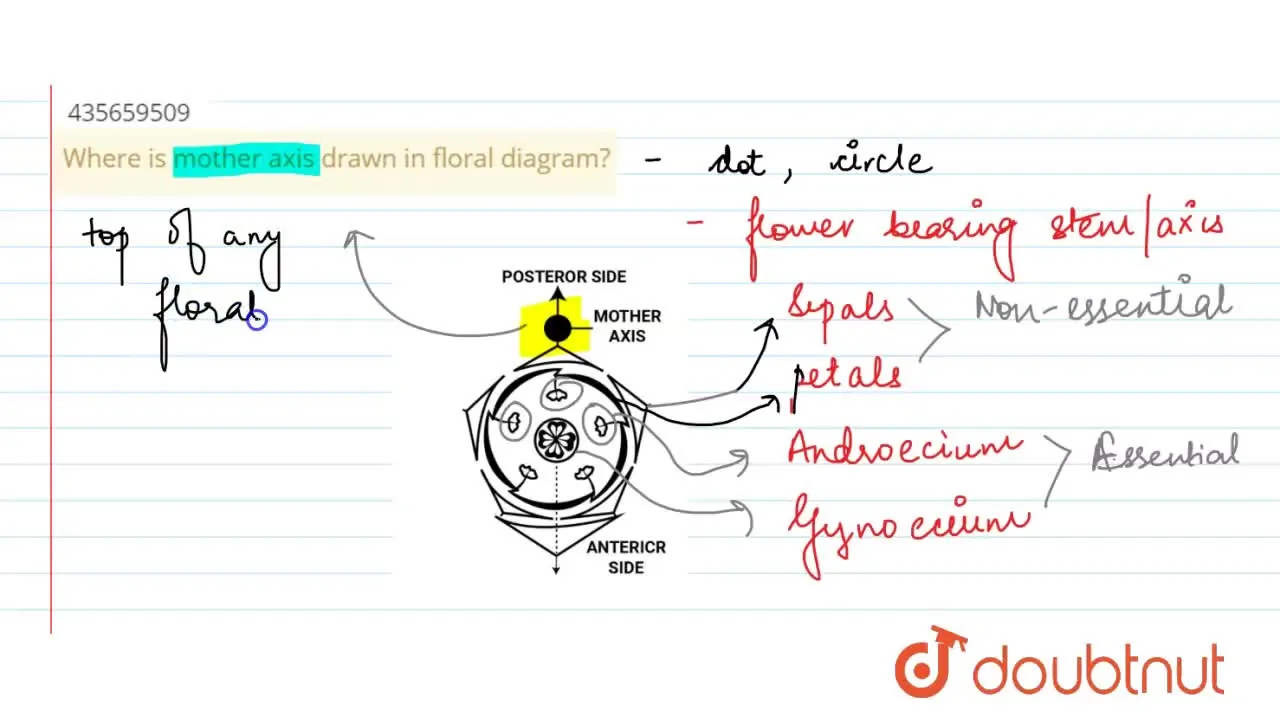 435659509
Where is mother axis drawn in floral diagram?
- dot, circle
- flower bearing stem/axis
top of any
floral
POSTEROR SIDE
MOTHER
AXIS
Sepals
Non-essential
petals
Androecium
Essential
Gynoecium
ANTERICR
SIDE
doubtnut